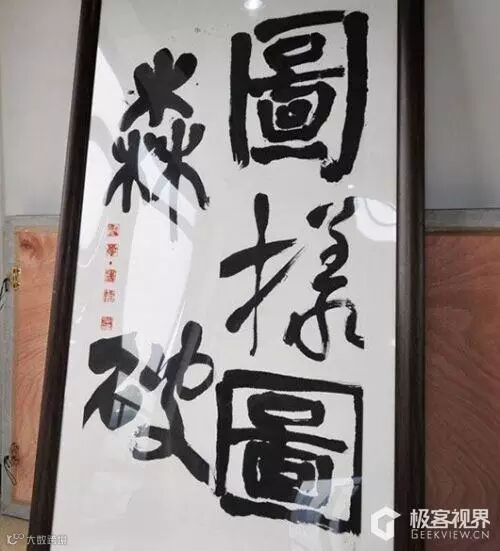 圖樣圖
森破
极客视界
GEEKVIEW.CN
大数跨境